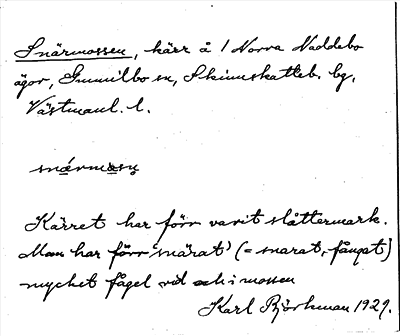 Snärmossen, kärr å 1 Norra Naddebo
ägor, Gunnilbo sn, Skinnskatteb. bg,
Västmanl. l.
snärmåsn̥
Kärret har förr varit slåttermark.
Man har förr 'snärat' (= snarat, fångat)
mycket fågel vid och i mossen
Karl Björkman 1929.